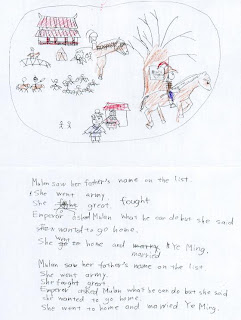 Mulan saw her father's name on the list.
She went army.
She great fought
Emperor asked Mulan what he can do but she said
she wanted to go home.
She went to home and married Ye Ming.
Mulan saw her father's name on the list
She went army.
She fought great.
Emperor asked Mulan what he can do but she said
she wanted to go home.
She went to home and married Ye Ming.